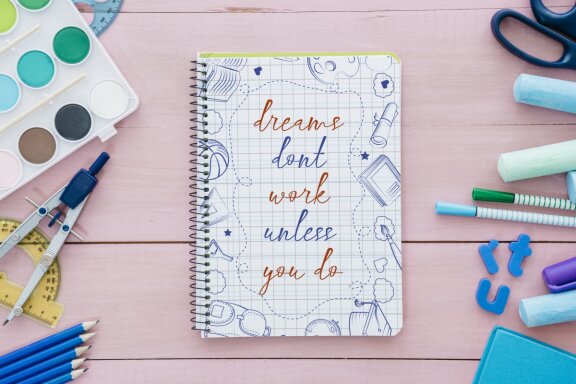 dreams
dont
work
unless
you do